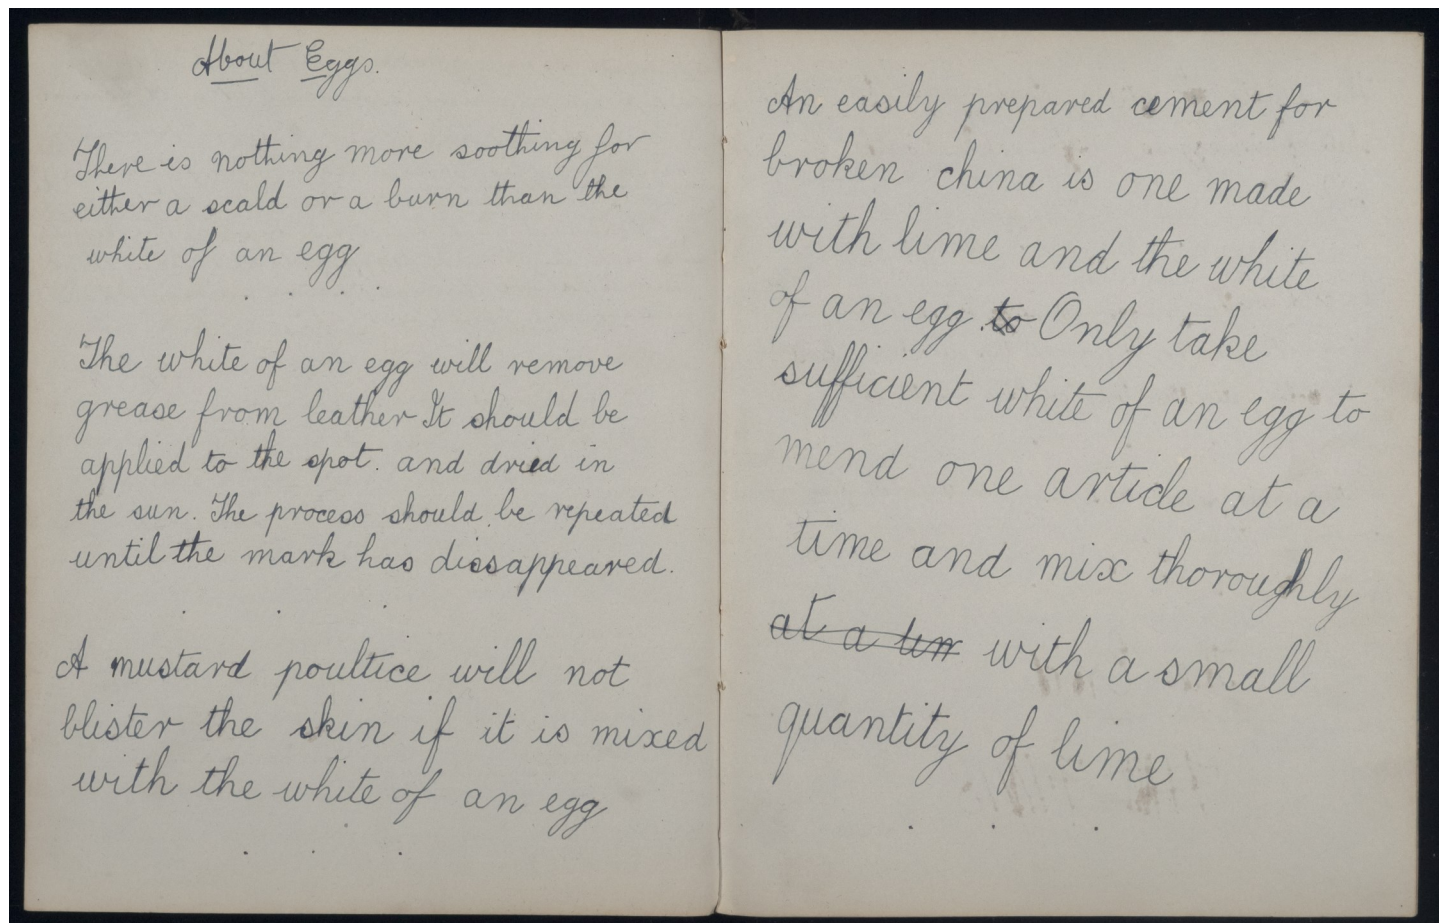 About Eggs.
There is nothing more soothing for
either a scald or a burn than the
white of an egg
The white of an egg will remove
grease from leather It should be
applied to the spot. and dried in
the sun. The process should be repeated
until the mark has dissappeared.
A mustard poultice will not
blister the skin if it is mixed
with the white of an egg
An easily prepared cement for
broken china is one made
with lime and the white
of an egg. to Only take
sufficient white of an egg to
mend one article at a
time and mix thoroughly
at a tim with a small
quantity of lime